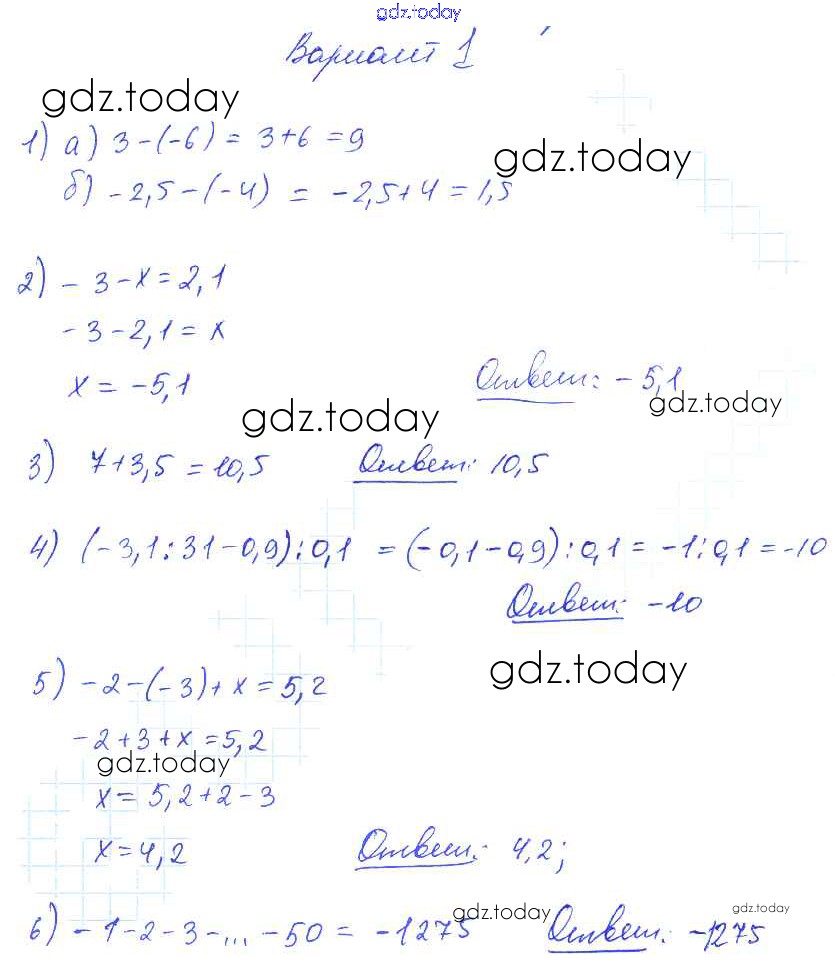 gdz.today
Вариант 1
gdz.today
1) а) 3-(-6) = 3+6 = 9
gdz.today
б) -2,5-(-4) = -2,5+4 = 1,5
2) -3-x = 2,1
-3-2,1 = x
x = -5,1 Ответ: -5,1
gdz.today gdz.today
3) 7+3,5 = 10,5 Ответ: 10,5
4) (-3,1:31-0,9):0,1 = (-0,1-0,9):0,1 = -1:0,1 = -10
Ответ: -10
gdz.today
5) -2-(-3)+x = 5,2
-2+3+x = 5,2
gdz.today
x = 5,2+2-3
x = 4,2 Ответ: 4,2;
gdz.today gdz.today
6) -1-2-3-...-50 = -1275 Ответ: -1275